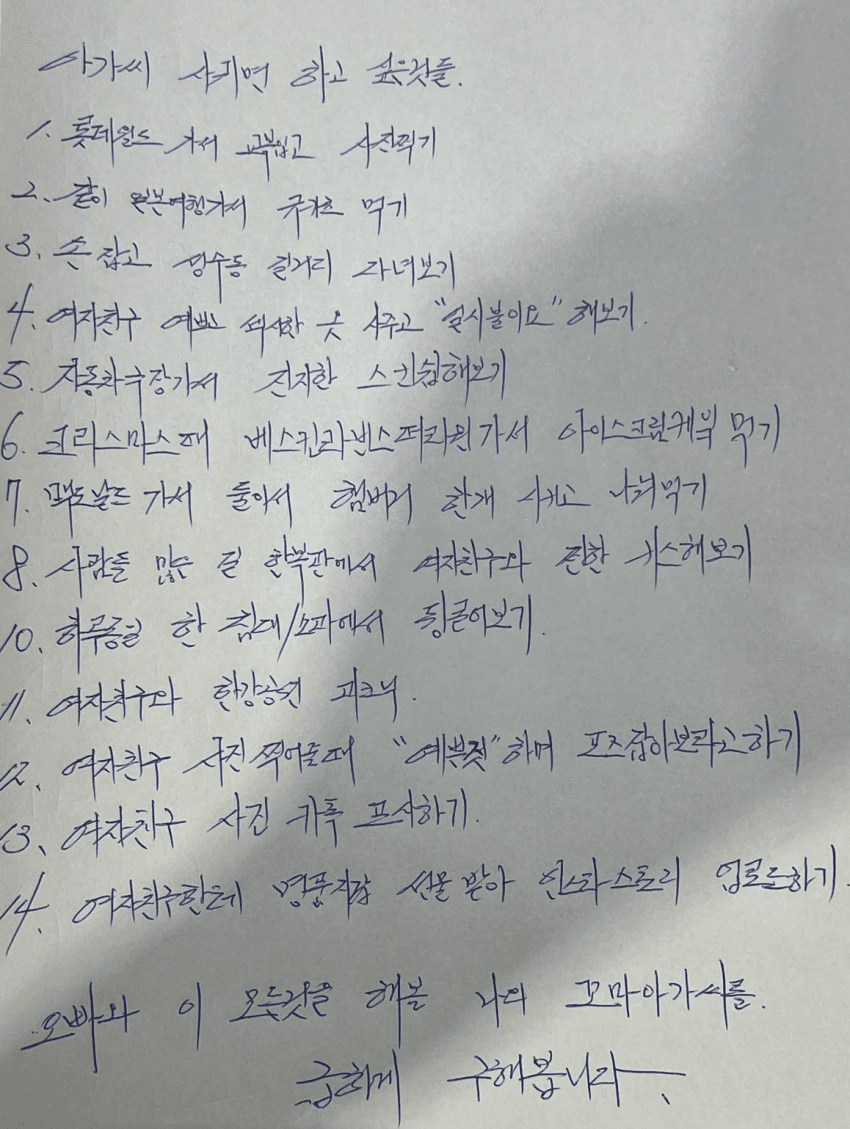 아가씨 사귀면 하고 싶은것들.
1. 롯데월드 가서 교복입고 사진찍기
2. 같이 일본여행가서 규카츠 먹기
3. 손 잡고 성수동 길거리 다녀보기
4. 여자친구 예쁘고 섹시한 옷 사주고 "일시불이요" 해보기.
5. 자동차극장가서 진지한 스킨쉽해보기
6. 크리스마스때 베스킨라빈스떠리원가서 아이스크림케익 먹기
7. 맥도날드 가서 둘이서 햄버거 한개 시키고 나눠먹기
8. 사람들 많은 길 한복판에서 여자친구와 진한 키스해보기
10. 하루종일 한 침대/소파에서 뒹굴어보기.
11. 여자친구와 한강공원 피크닉.
12. 여자친구 사진 찍어줄때 "예쁜짓"하며 포즈잡아보라고하기
13. 여자친구 사진 카톡 프사하기.
14. 여자친구한테 명품지갑 선물 받아 인스타스토리 업로드하기.
오빠와 이 모든것을 해볼 나의 꼬마아가씨를.
급하게 구해봅니다.